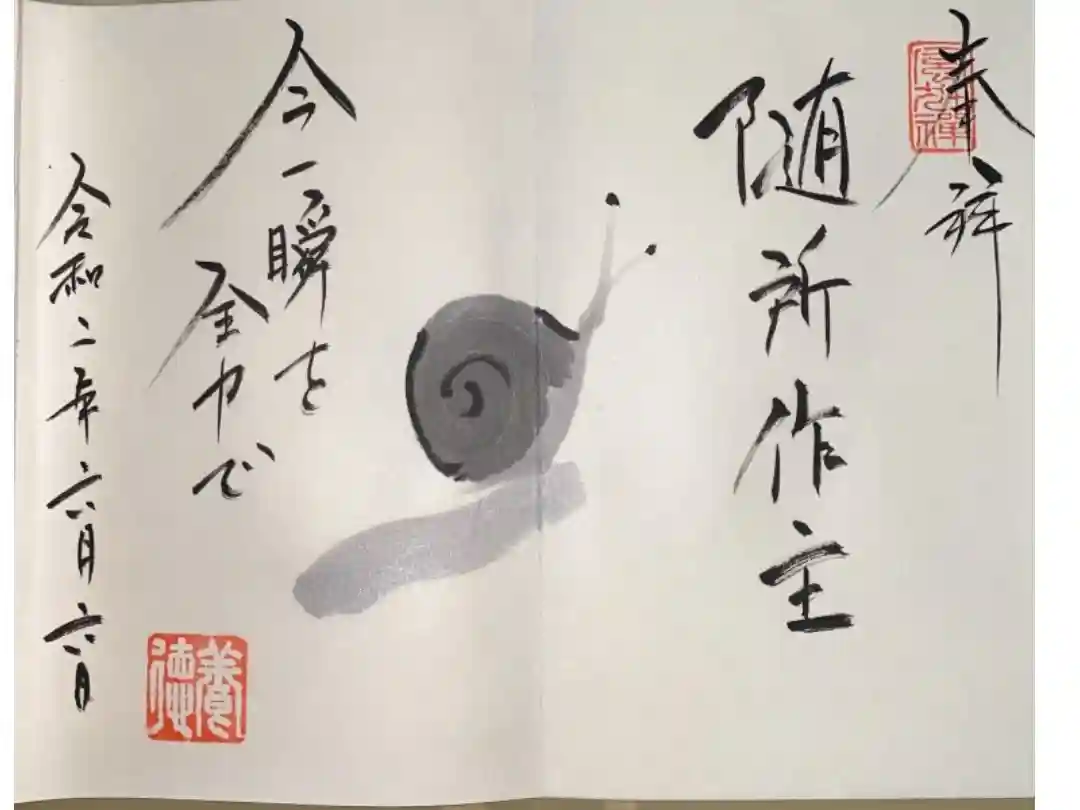 奉拝
随所作主
今一瞬を
全力で
令和二年六月六日
養徳